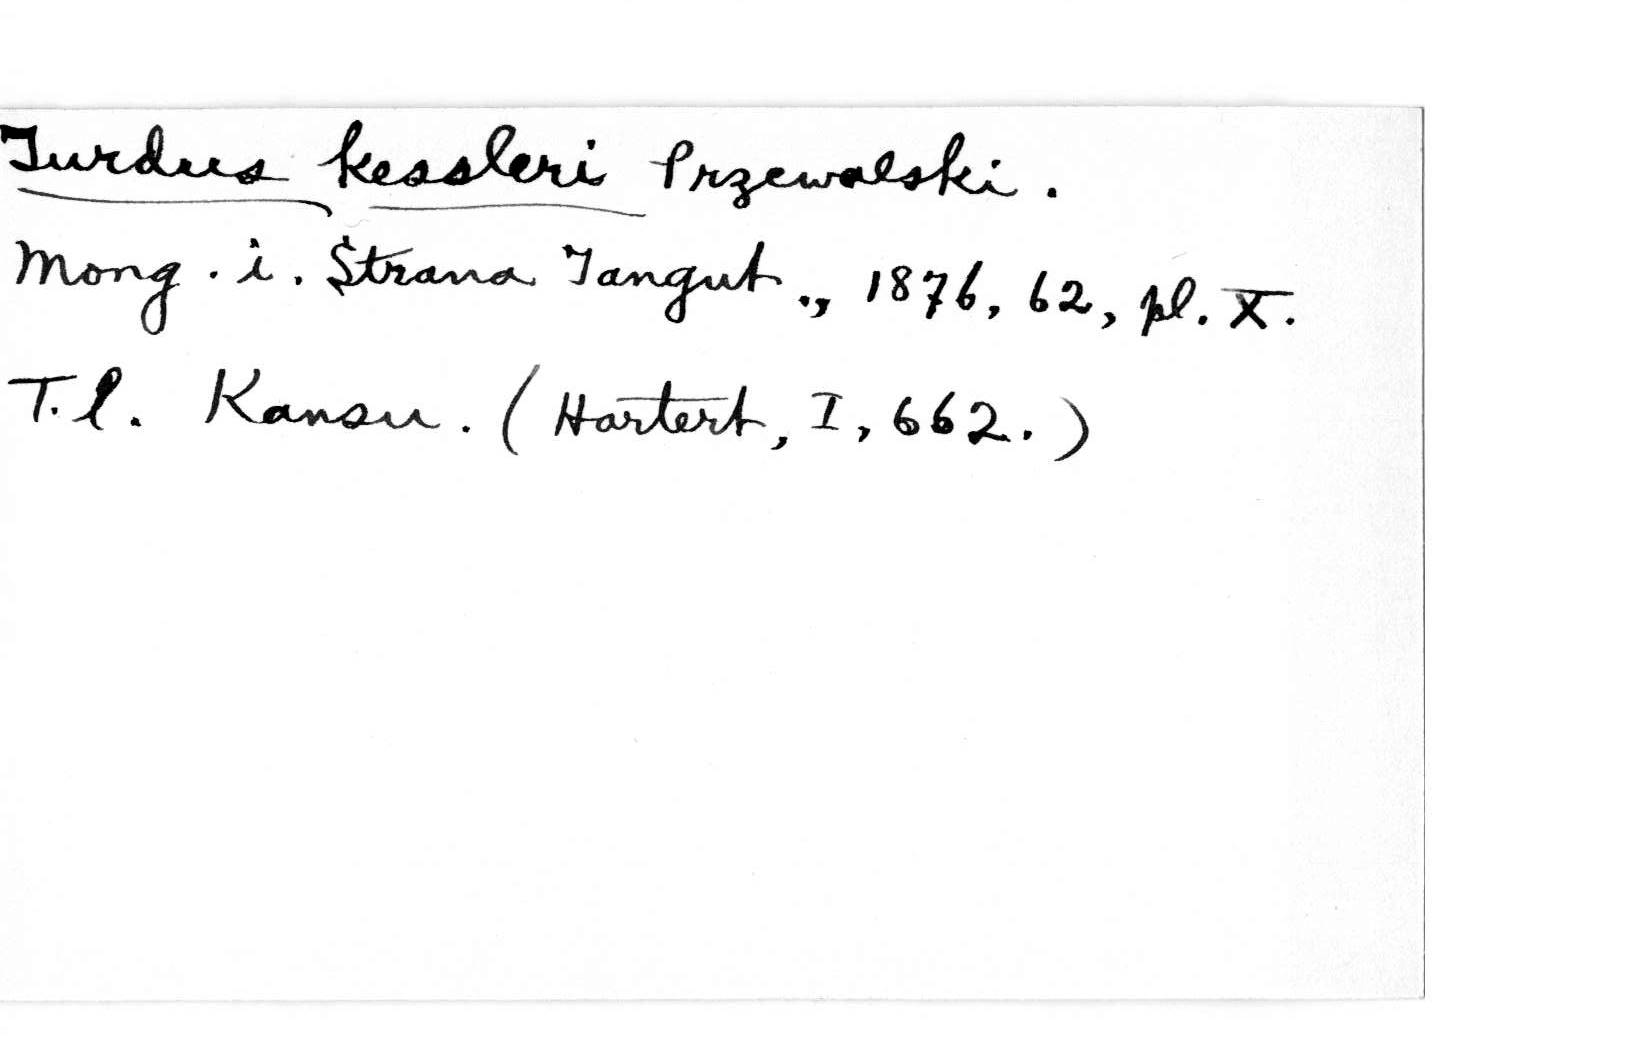 Turdus kessleri Przewalski.
Mong. i. Strana Tangut., 1876, 62, pl. X.
T.l. Kansu. (Hartert, I, 662.)